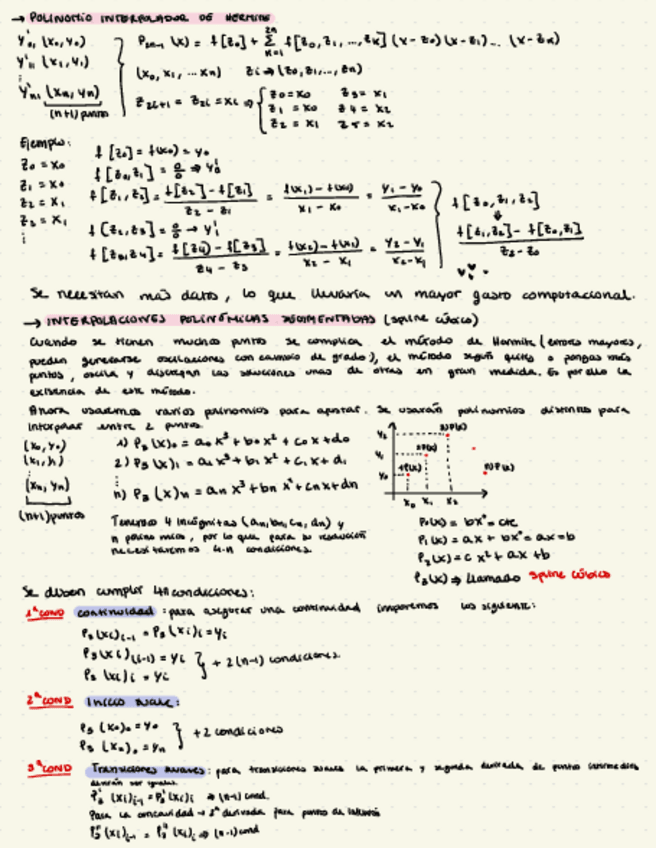 → POLINOMIO INTERPOLADOR DE HERMITE
y'0, (x0, y0)
y'1, (x1, y1)
⋮
y'n, (xn, yn)
(n+1) puntos
P2n-1 (x) = f[z0] + Σ f[z0, z1, ..., zk] (x-z0)(x-z1)... (x-zk)
2n
K=1
(x0, x1, ... xn) zi ⇒ (z0, z1, ..., zn)
z2i+1 = z2i = xi ⇒ { z0 = x0 z3 = x1
z1 = x0 z4 = x2
z2 = x1 z5 = x2
Ejemplo:
z0 = x0
z1 = x0
z2 = x1
z3 = x1
⋮
f[z0] = f(x0) = y0
f[z0, z1] = 0/0 ⇒ y'0
f[z1, z2] = f[z2] - f[z1] / z2 - z1 = f(x1) - f(x0) / x1 - x0 = y1 - y0 / x1 - x0
f[z2, z3] = 0/0 → y'1
f[z3, z4] = f[z4] - f[z3] / z4 - z3 = f(x2) - f(x1) / x2 - x1 = y2 - y1 / x2 - x1
f[z0, z1, z2]
f[z1, z2] - f[z0, z1] / z2 - z0
Se necesitan más datos, lo que llevaría un mayor gasto computacional.
→ INTERPOLACIONES POLINÓMICAS SEGMENTADAS (spline cúbico)
Cuando se tienen muchos puntos se complica el método de Hermite (errores mayores,
pueden generarse oscilaciones con cambio de grado), el método según quites o pongas más
puntos, oscila y discrepan las soluciones unas de otras en gran medida. Es por ello la
existencia de este método.
Ahora usaremos varios polinomios para ajustar. Se usarán polinomios distintos para
interpolar entre 2 puntos.
(x0, y0)
(x1, y1)
⋮
(xn, yn)
(n+1) puntos
1) P3 (x)0 = a0 x³ + b0 x² + c0 x + d0
2) P3 (x)1 = a1 x³ + b1 x² + c1 x + d1
⋮
n) P3 (x)n = an x³ + bn x² + cn x + dn
Tenemos 4 incógnitas (an, bn, cn, dn) y
n polinomios, por lo que para su resolución
necesitaremos 4·n condiciones.
y2
y1
y0
x0 x1 x2
P0(x) = bx⁰ = cte
P1(x) = ax + bx⁰ = ax + b
P2(x) = c x² + ax + b
P3(x) ⇒ llamado spline cúbico
Se deben cumplir 4n condiciones:
1ª COND continuidad: para asegurar una continuidad imponemos lo siguiente:
P3 (xi)i-1 = P3 (xi)i = yi
P3 (xi)(i-1) = yi
P3 (xi)i = yi } + 2(n-1) condiciones.
2ª COND Inicio suave:
P3 (x0)0 = y0
P3 (xn)n = yn } + 2 condiciones
3ª COND Transiciones suaves: para transiciones suaves la primera y segunda derivada de puntos intermedios
deberán ser iguales.
P'3 (xi)i-1 = P'3 (xi)i ⇒ (n-1) cond.
Para la concavidad → 2ª derivada para punto de
P''3 (xi)i-1 = P''3 (xi)i ⇒ (n-1) cond